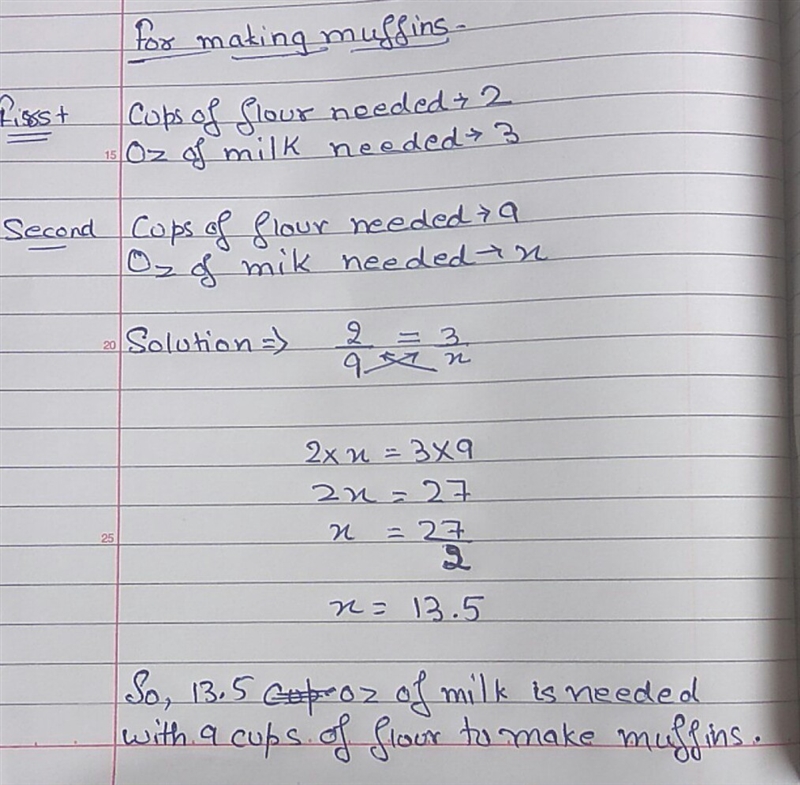 For making muffins.
First Cups of flour needed → 2
15 Oz of milk needed → 3
Second Cups of flour needed → 9
Oz of mik needed → x
20 Solution ⇒ 2/9 = 3/x
2 × x = 3 × 9
2x = 27
25 x = 27/2
x = 13.5
So, 13.5 oz of milk is needed
with 9 cups of flour to make muffins.